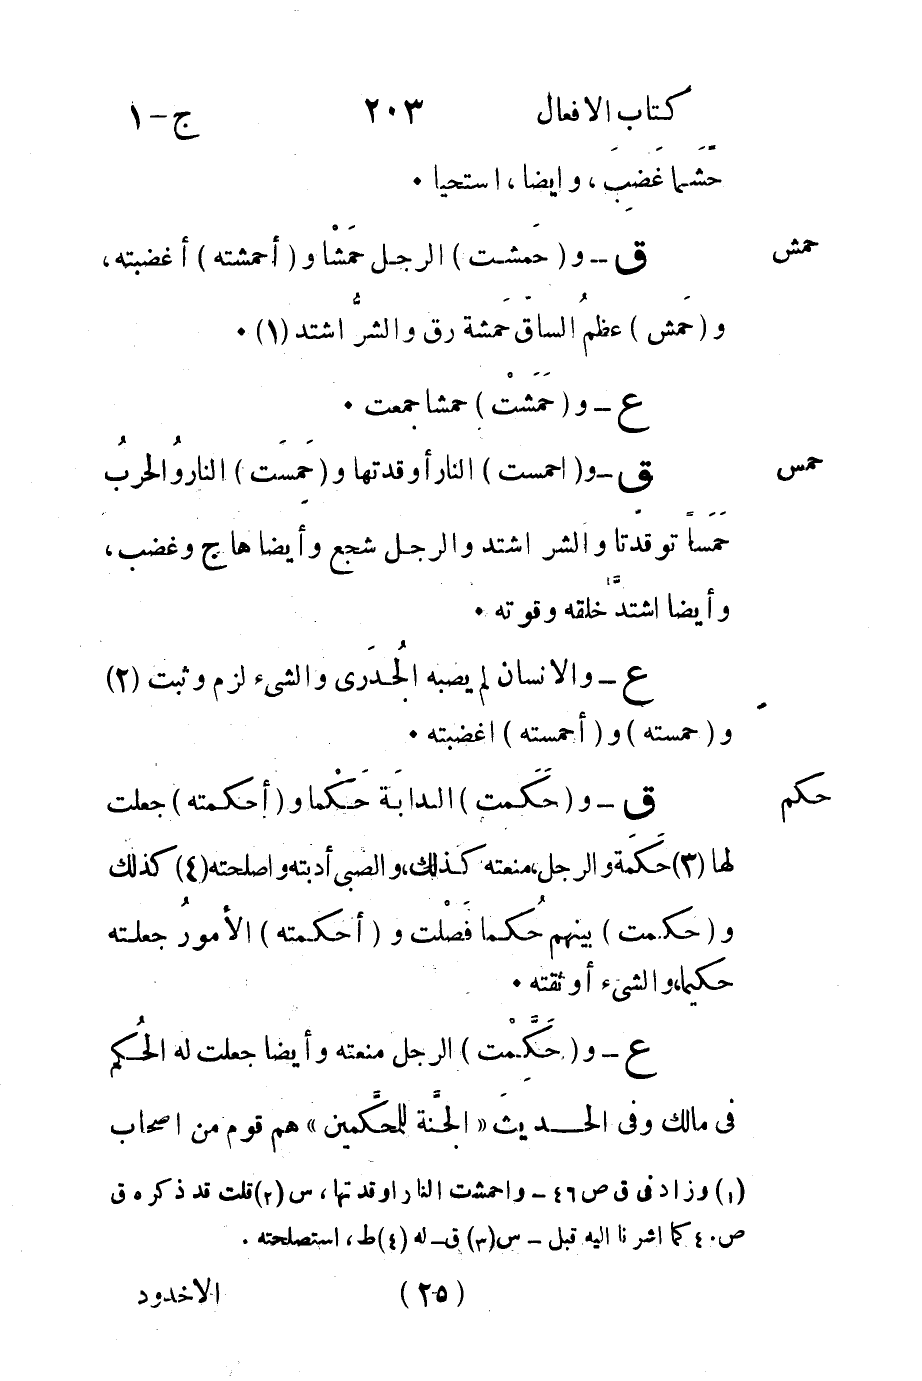 كتاب الافعال ٢٠٣ ج-١
حَشَما غَضِبَ، وايضا، استحيا •
حمش ق - و (حَمشت) الرجل حَمْشا و (أحمشته) أغضبته،
و (حَمَش) عظمُ الساق حَمَشة رق والشرُّ اشتد (١) •
ع - و (حَمَشَتْ) حمشا جمعت •
حمس ق - و (احمست) النار أوقدتها و (حَمِسَت) النارُ والحربُ
حَمَساً توقدتا والشر اشتد والرجل شجع وأيضا هاج وغضب،
وأيضا اشتدَّ خلقه وقوته •
ع - والانسان لم يصبه الجُدَرى والشىء لزم وثبت (٢)
و (حمسته) و (أحمسته) اغضبته •
حكم ق - و (حَكَمت) الدابةَ حَكْما و (أحكمته) جعلت
لها (٣) حَكَمَة والرجل، منعته كذلك، والصبى أدبته واصلحته (٤) كذلك
و (حكمت) بينهم حُكما فَصَلْت و (أحكمته) الأمورُ جعلته
حكيما، والشىء أوثقته •
ع - و (حَكَّمْت) الرجل منعته وأيضا جعلت له الحُكم
فى مالك وفى الحديث «الجنَّة للمحكَّمين» هم قوم من اصحاب
(١) وزاد فى ق ص ٤٦ - واحمشت النار اوقدتها، س (٢) قلت قد ذكره ق
ص ٤٠ كما اشرنا اليه قبل - س (٣) ق - له (٤) ط، استصلحته .
(٢٥) الاخدود